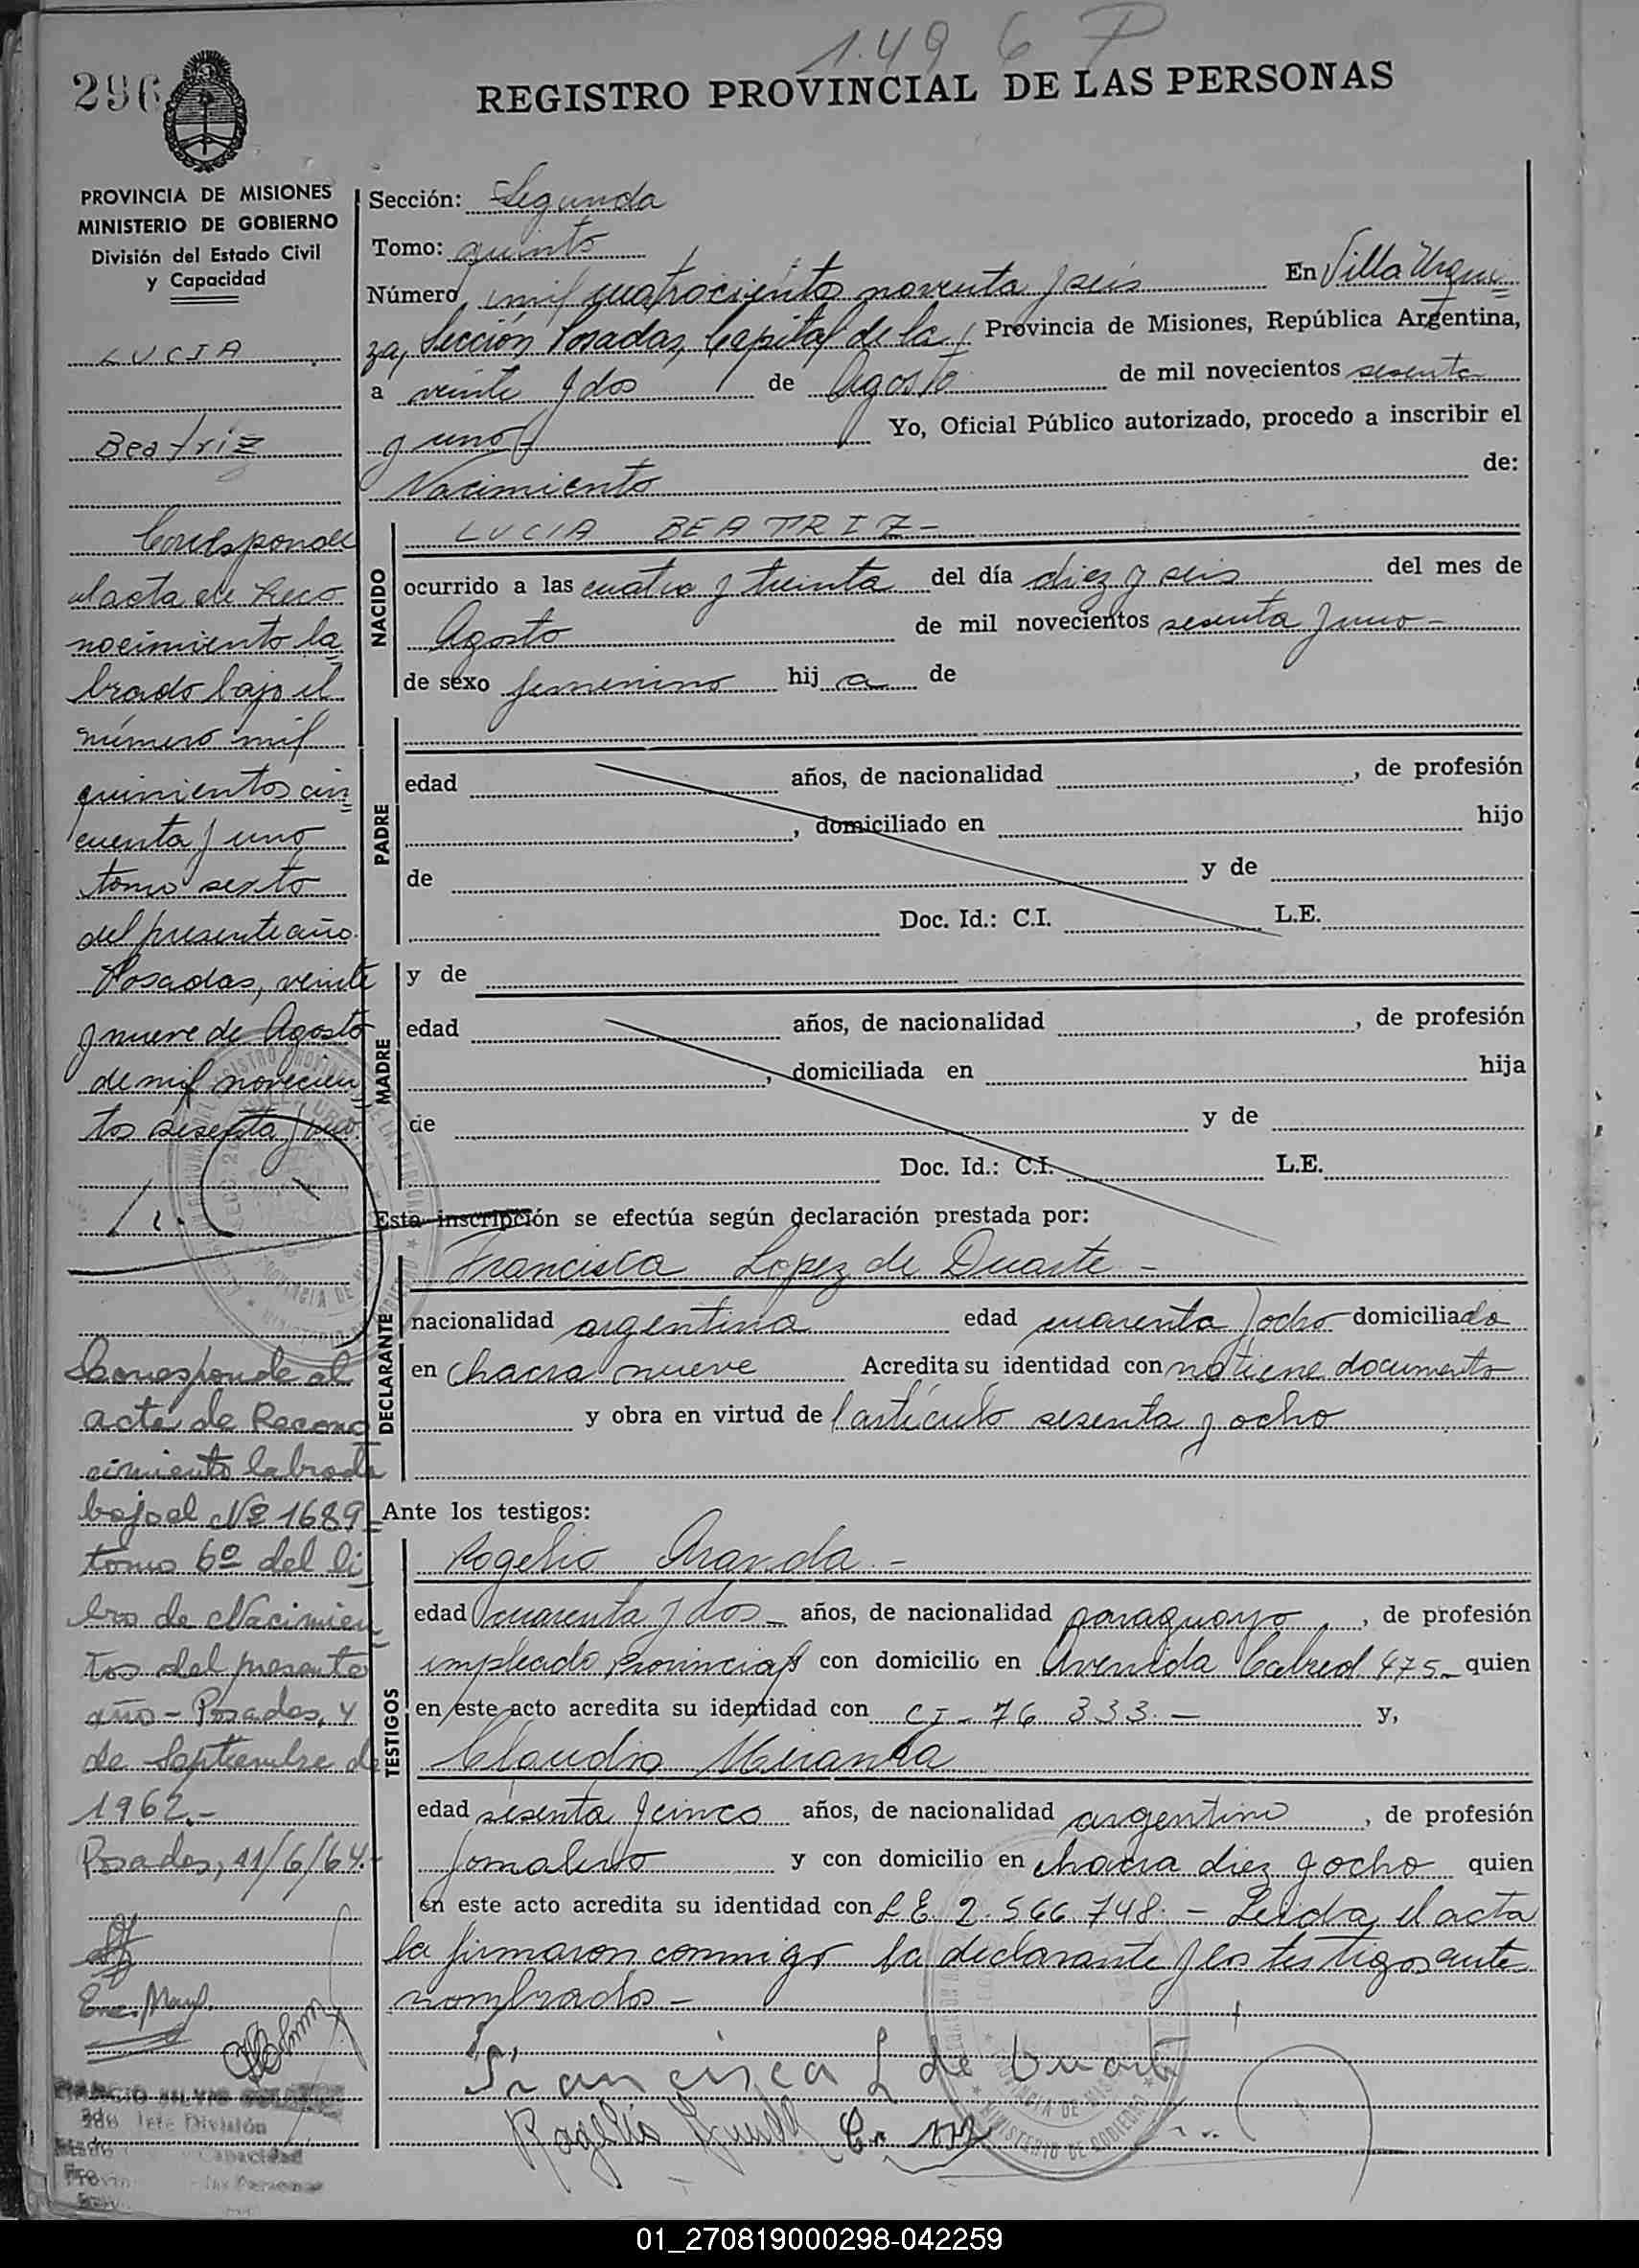 1.496 P
296
REGISTRO PROVINCIAL DE LAS PERSONAS
PROVINCIA DE MISIONES
MINISTERIO DE GOBIERNO
División del Estado Civil
y Capacidad
LUCIA
Beatriz
Corresponde
al acta de Reco
nocimiento la=
brado bajo el
número mil
quinientos cin=
cuenta y uno
tomo sexto
del presente año.
Posadas, veinte
y nueve de Agosto
de mil novecien=
tos sesenta y uno.
Corresponde al
acta de Recono=
cimiento labrado
bajo el Nº 1689=
tomo 6º del li=
bro de Nacimien=
tos del presente
año - Posadas, 4
de Septiembre de
1962.-
Posadas, 11/6/64.-
Enc. Mayf.
2do Jefe División
Capacidad
Sección: Segunda
Tomo: quinto
Número mil cuatrocientos noventa y seis En Villa Urqui=
za, Sección Posadas, Capital de la Provincia de Misiones, República Argentina,
a veinte y dos de Agosto de mil novecientos sesenta
y uno Yo, Oficial Público autorizado, procedo a inscribir el
Nacimiento de:
NACIDO
LUCIA BEATRIZ-
ocurrido a las cuatro y treinta del día diez y seis del mes de
Agosto de mil novecientos sesenta y uno-
de sexo femenino hij a de
PADRE
edad años, de nacionalidad , de profesión
, domiciliado en hijo
de y de
Doc. Id.: C.I. L.E.
MADRE
y de
edad años, de nacionalidad , de profesión
, domiciliada en hija
de y de
Doc. Id.: C.I. L.E.
Esta inscripción se efectúa según declaración prestada por:
DECLARANTE
Francisca Lopez de Duarte -
nacionalidad argentina edad cuarenta y ocho domiciliada
en chacra nueve Acredita su identidad con no tiene documento
y obra en virtud de l artículo sesenta y ocho
Ante los testigos:
TESTIGOS
Rogelio Aranda -
edad cuarenta y dos - años, de nacionalidad paraguayo , de profesión
empleado Provincial con domicilio en Avenida Cabred 475- quien
en este acto acredita su identidad con CI - 76 333. - y,
Claudio Miranda
edad sesenta y cinco años, de nacionalidad argentino , de profesión
Jornalero y con domicilio en chacra diez y ocho quien
en este acto acredita su identidad con L E. 2.566.748. - Leida, el acta
la firmaron conmigo la declarante y los testigos ante
nombrados -
Francisca L de Duarte
Rogelio
01_270819000298-042259